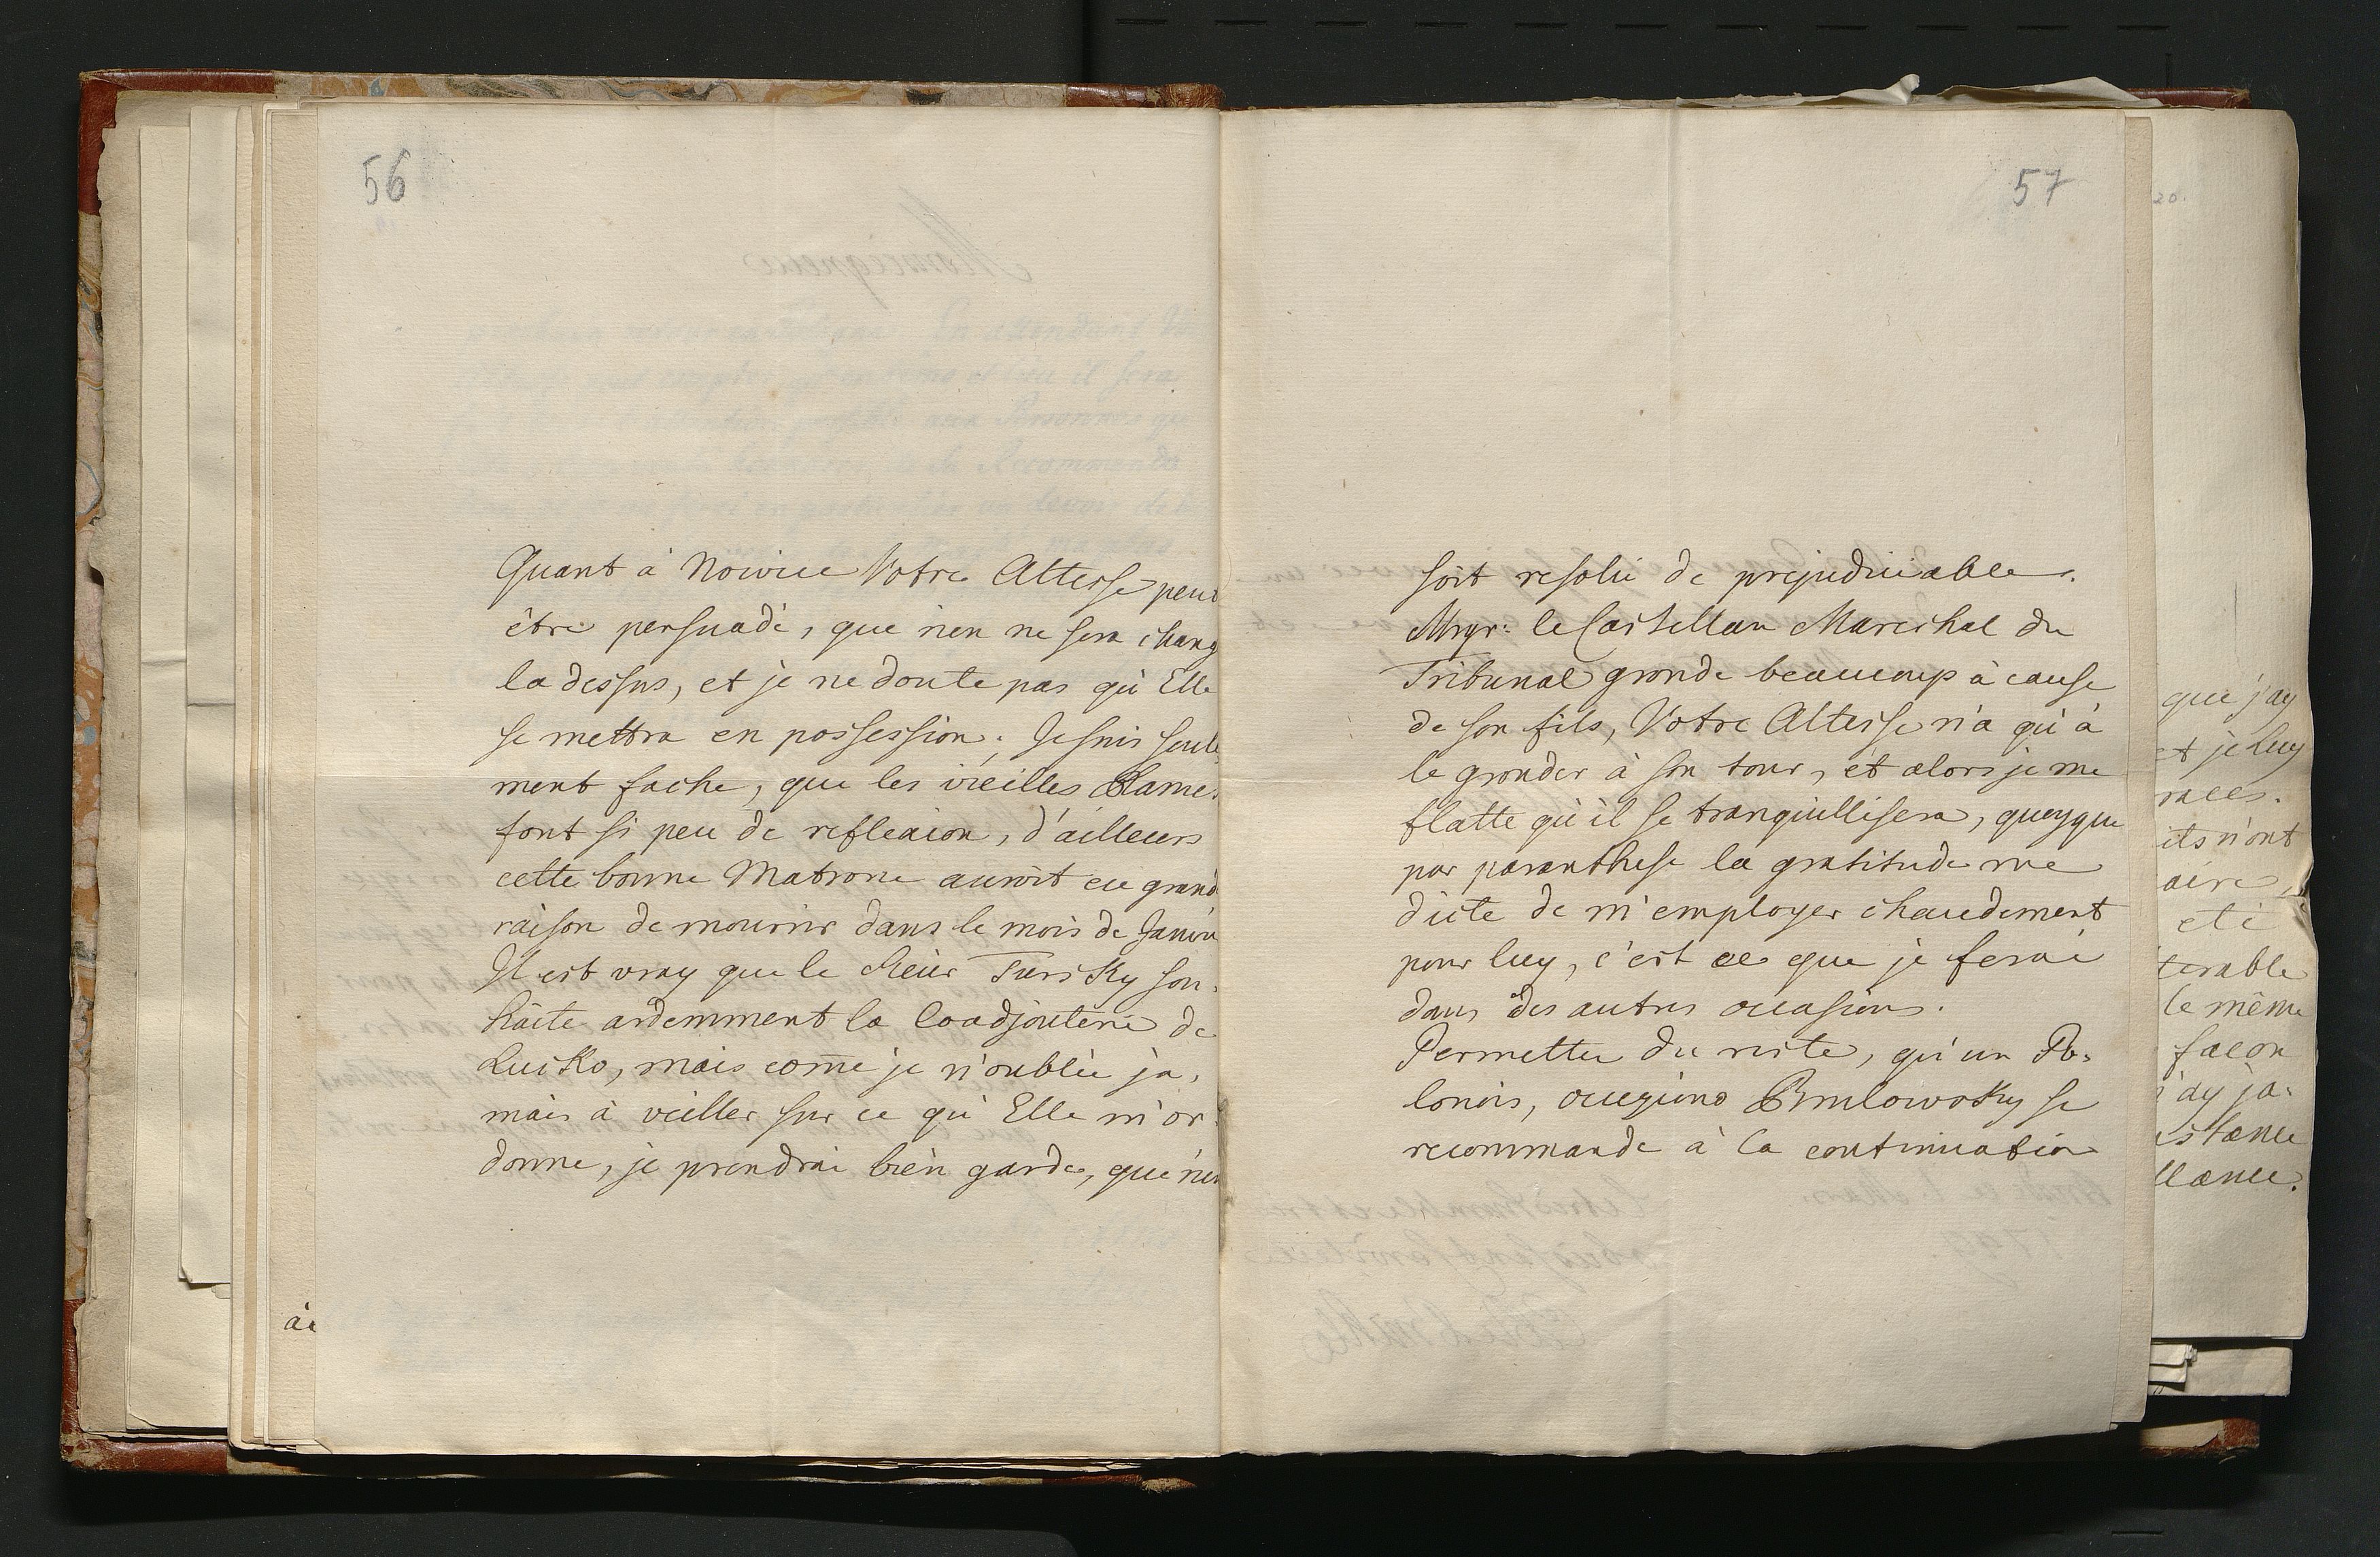 56
Quant à Nowice Votre Altesse peut
être persuadé, que rien ne sera chang
la dessus, et je ne doute pas qu'Elle
se mettra en possession. Je suis seule
ment faché, que les vieilles Dames
font si peu de reflexion, d'ailleurs
cette bonne Matrone auroit eu grand
raison de mourir dans le mois de Janvi
Il est vray que le Sieur Tursky sou=
häite ardemment la Coadjouterie de
Lucko, mais com̄e je n'oublie ja,
mais à veiller sur ce qu'Elle m'or=
donne, je prendrai bien garde, que rien
57
soit resolu de prejudiciable.
Mgr: le Castellan Marechal du
Tribunal gronde beaucoup à cause
de son fils, Votre Altesse n'a qu'à
le gronder à son tour, et alors je me
flatte qu'il se tranquillisera, quoyque
par paranthese la gratitude me
dicte de m'employer chaudement
pour luy, c'est ce que je ferai
dans des autres occasions.
Permettez du reste, qu'un Po=
lonois, Brulowsky se
recommande à la continuation
20.
que j'ay
et je luy
races.
ils n'ont
aire,
eté
terable
le même
façon
ay ja=
stance
llance.